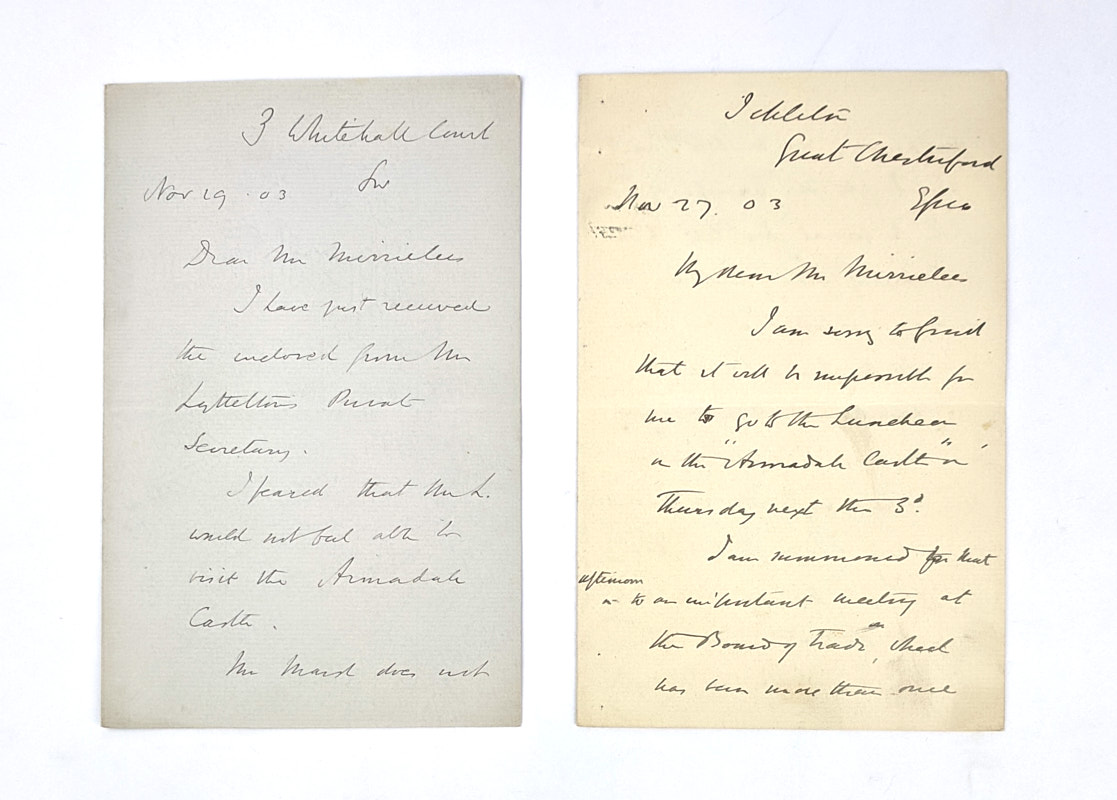 3 Whitehall Court
SW
Nov 29 . 03
Dear Mr Mirrielees
I have just received
the enclosed from Mr
Lyttelton's Private
Secretary.
I feared that Mr L.
would not feel able to
visit the Armadale
Castle.
Mr Marsh does not
Ickleton
Great Chesterford
Nov 27. 03
Essex
My dear Mr Mirrielees
I am sorry to find
that it will be impossible for
me to go to the Luncheon
on the "Armadale Castle" on
Thursday next the 3d.
I am summoned for that
afternoon
to an important meeting at
the Board of Trade, which
has been more than once